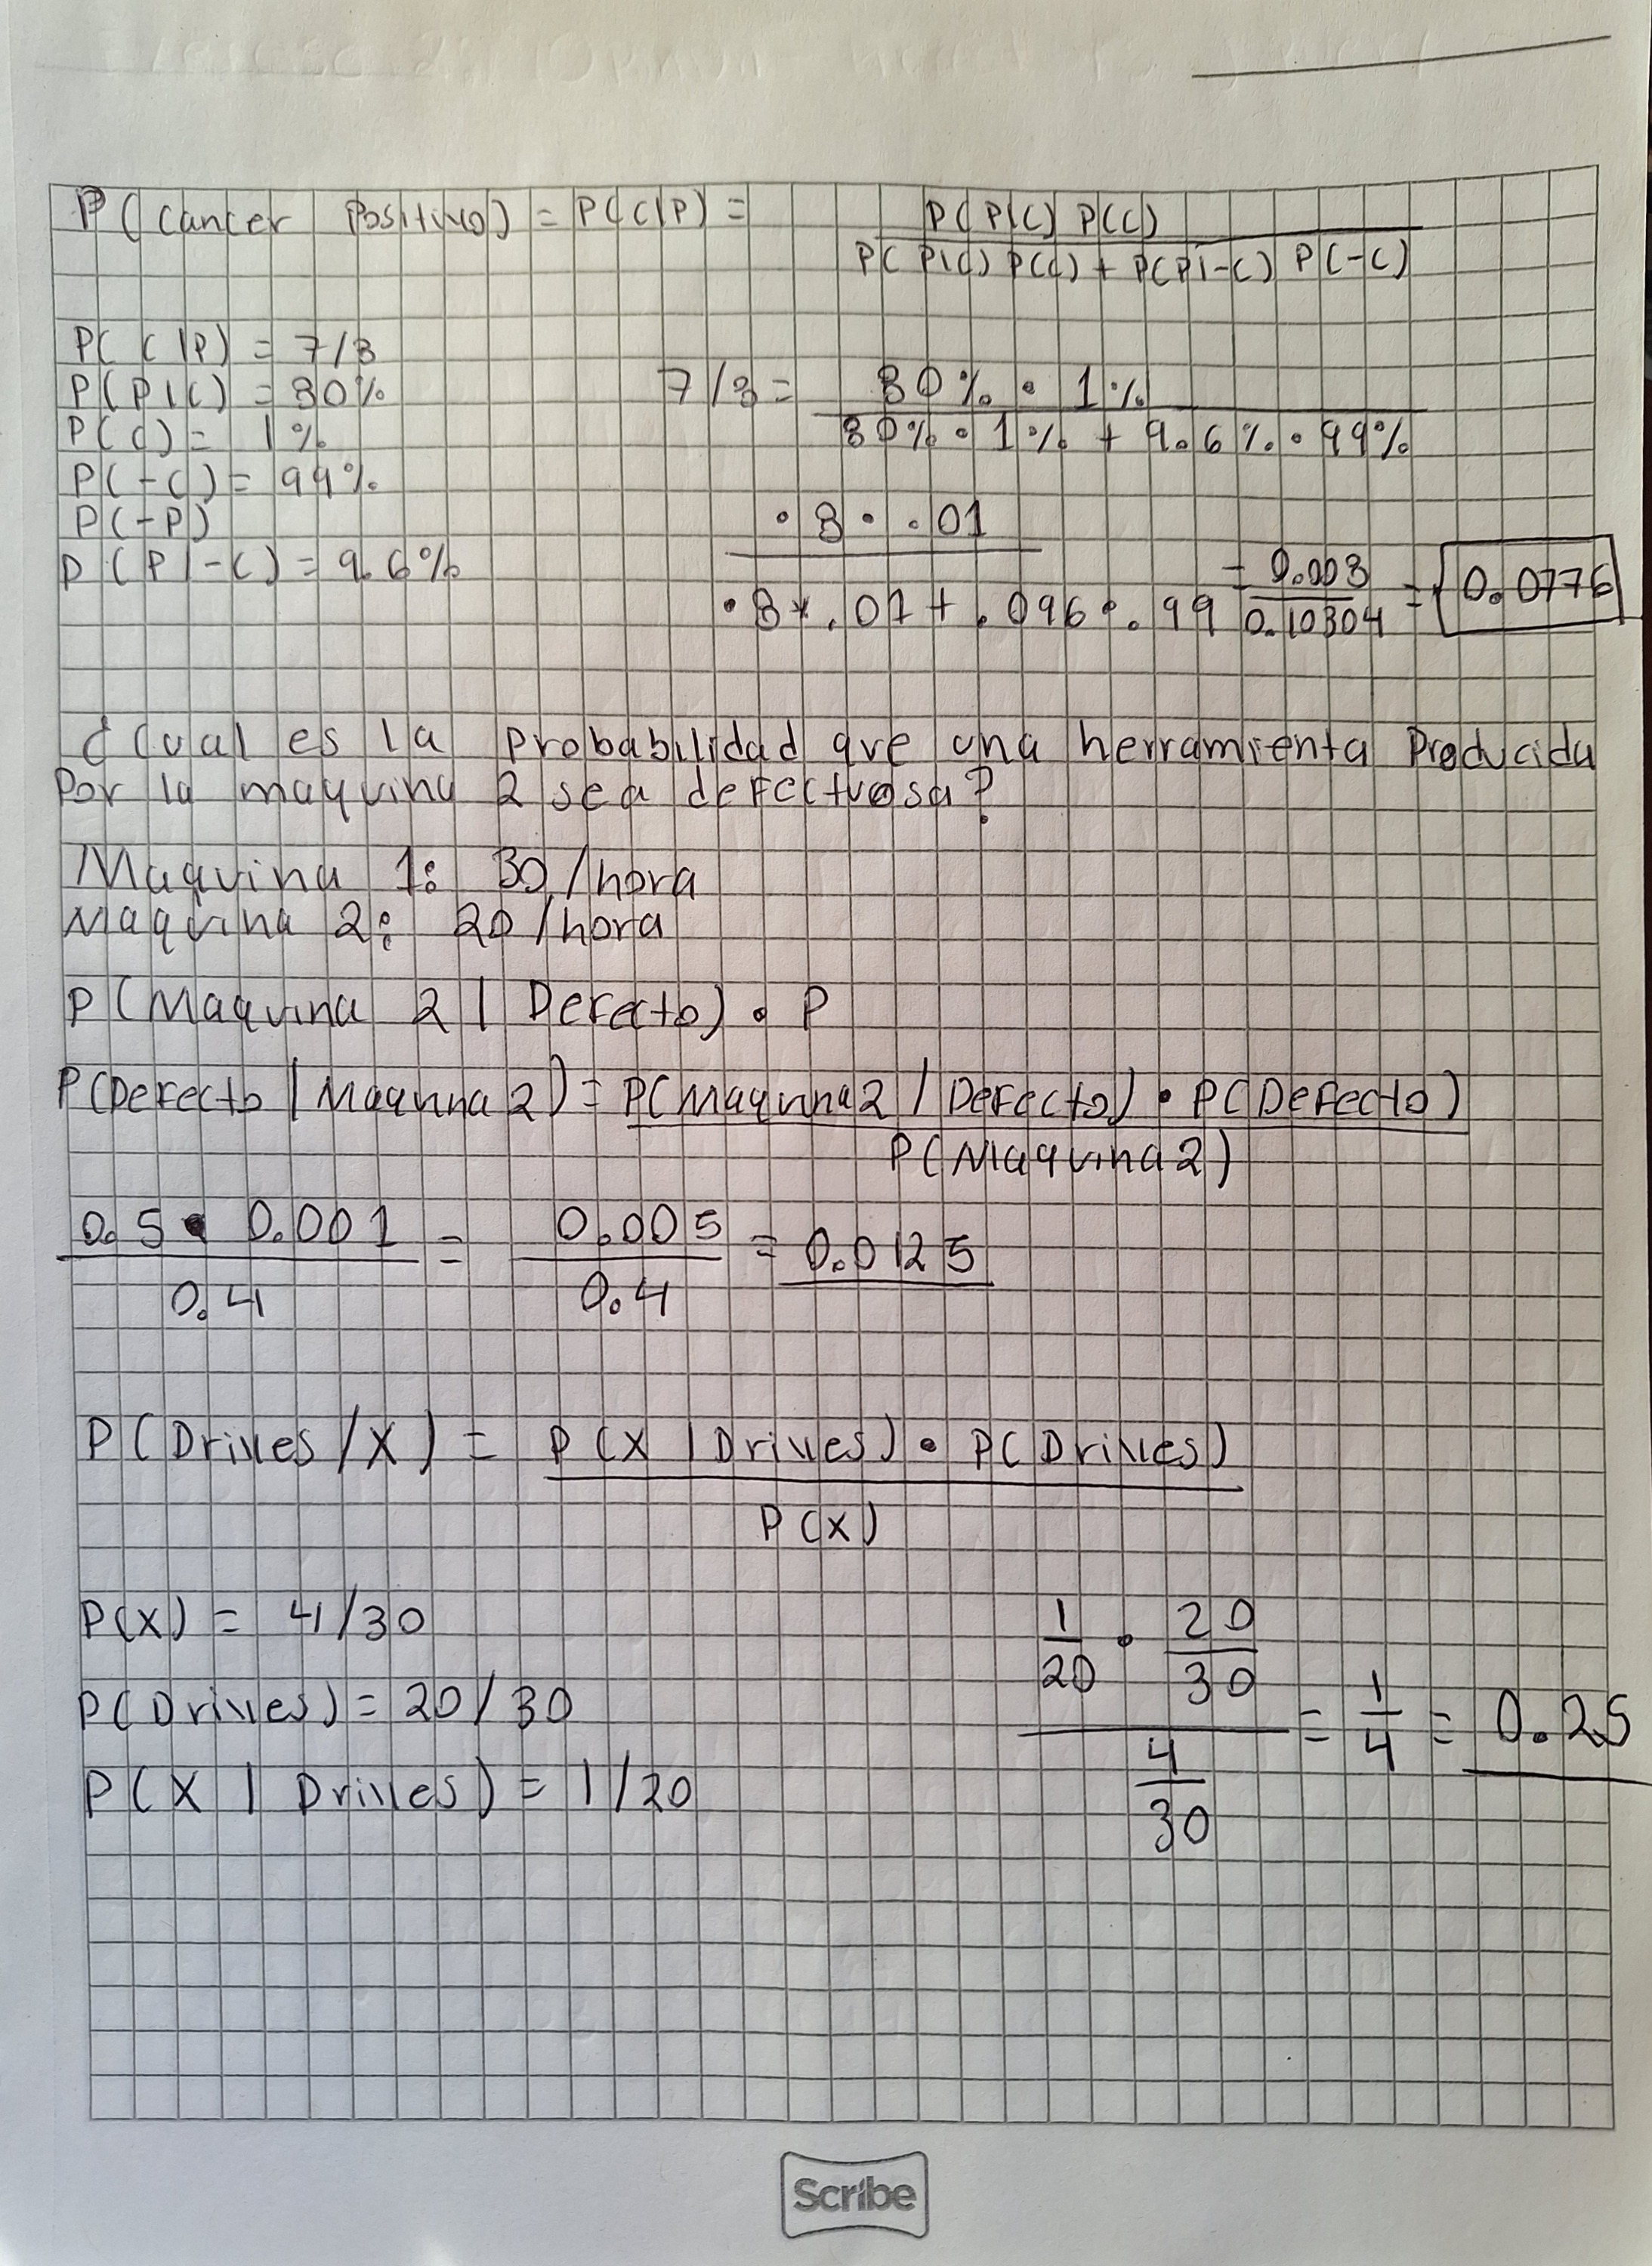 P(Cancer Positivo) = P(C|P) = P(P|C) P(C)
P(P|C) P(C) + P(P|-C) P(-C)
P(C|P) = 7/8
P(P|C) = 80%
7/8 = 80% • 1%
P(C) = 1%
80% • 1% + 9.6% • 99%
P(-C) = 99%
P(-P)
.8 • .01
P(P|-C) = 9.6%
.8 * .01 + .096 • .99 = 0.008 / 0.10304 = 0.0776
¿Cual es la probabilidad que una herramienta Producida
Por la maquina 2 sea defectuosa?
Maquina 1: 30/hora
Maquina 2: 20/hora
P(Maquina 2 | Defecto) • P
P(Defecto | Maquina 2) = P(Maquina 2 / Defecto) • P(Defecto)
P(Maquina 2)
0.5 • 0.001 = 0.005 = 0.0125
0.4 0.4
P(Drives/X) = P(X | Drives) • P(Drives)
P(X)
P(X) = 4/30
1 • 20
20 30
P(Drives) = 20/30
= 1/4 = 0.25
P(X | Drives) = 1/20
4
30
Scribe